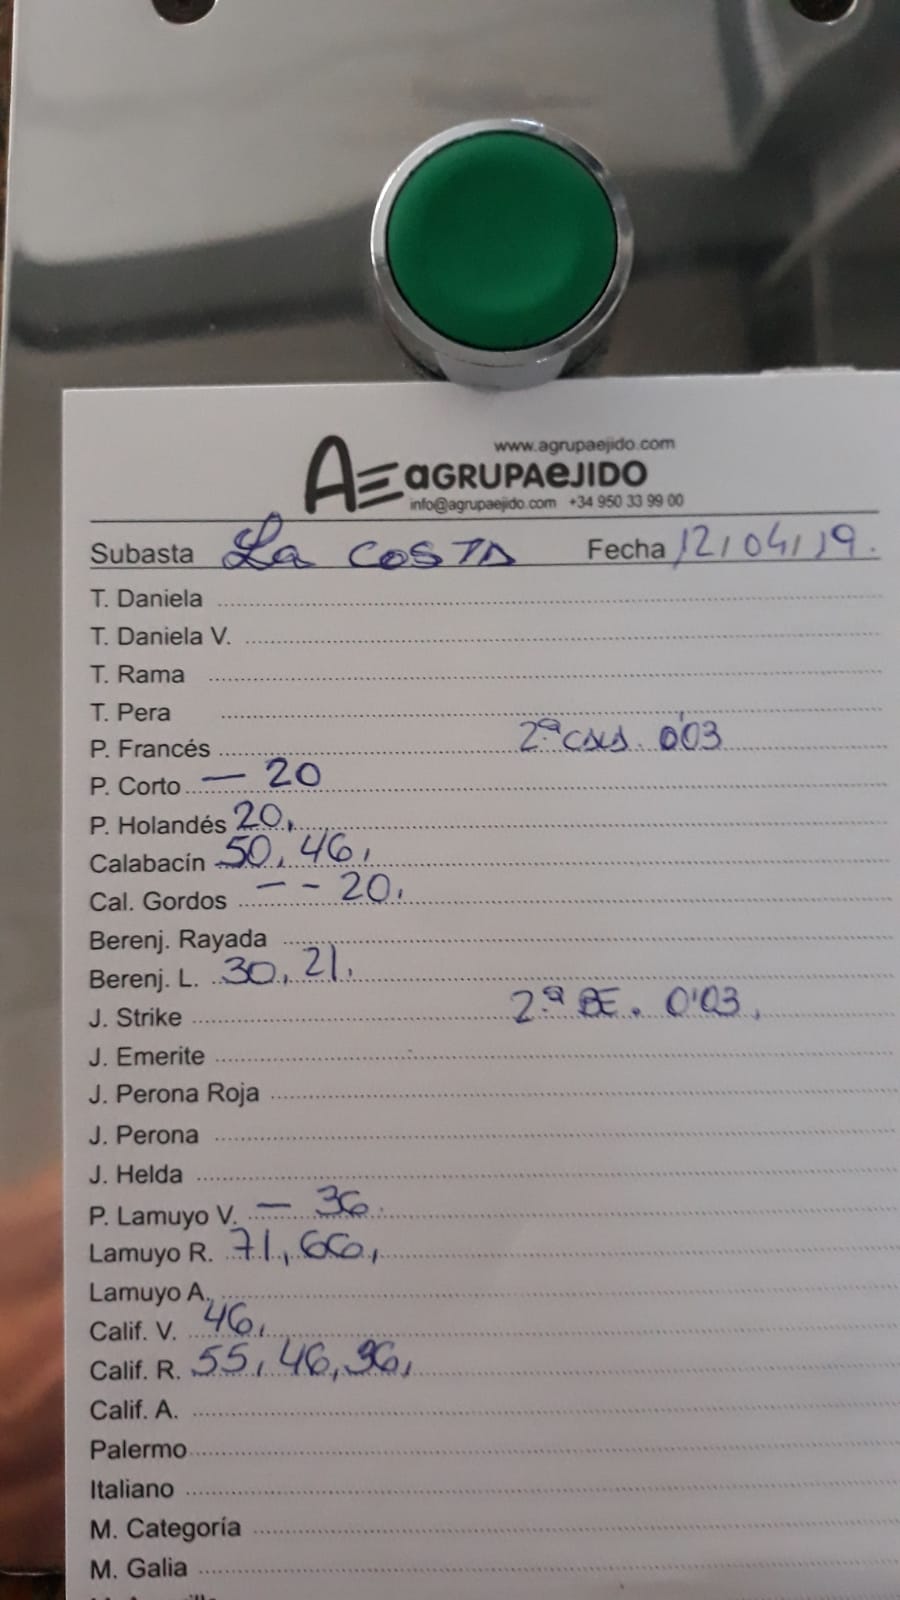 www.agrupaejido.com
AE aGRUPAeJIDO
info@agrupaejido.com +34 950 33 99 00
Subasta La COSTA Fecha 12/04/19.
T. Daniela
T. Daniela V.
T. Rama
T. Pera
P. Francés 2ª CALA. 0'03
P. Corto — 20
P. Holandés 20,
Calabacín 50, 46,
Cal. Gordos — - 20.
Berenj. Rayada
Berenj. L. 30, 21.
J. Strike 2.ª BE. 0'03,
J. Emerite
J. Perona Roja
J. Perona
J. Helda
P. Lamuyo V. — 36.
Lamuyo R. 71, 66,
Lamuyo A.
Calif. V. 46,
Calif. R. 55, 46, 36,
Calif. A.
Palermo
Italiano
M. Categoría
M. Galia